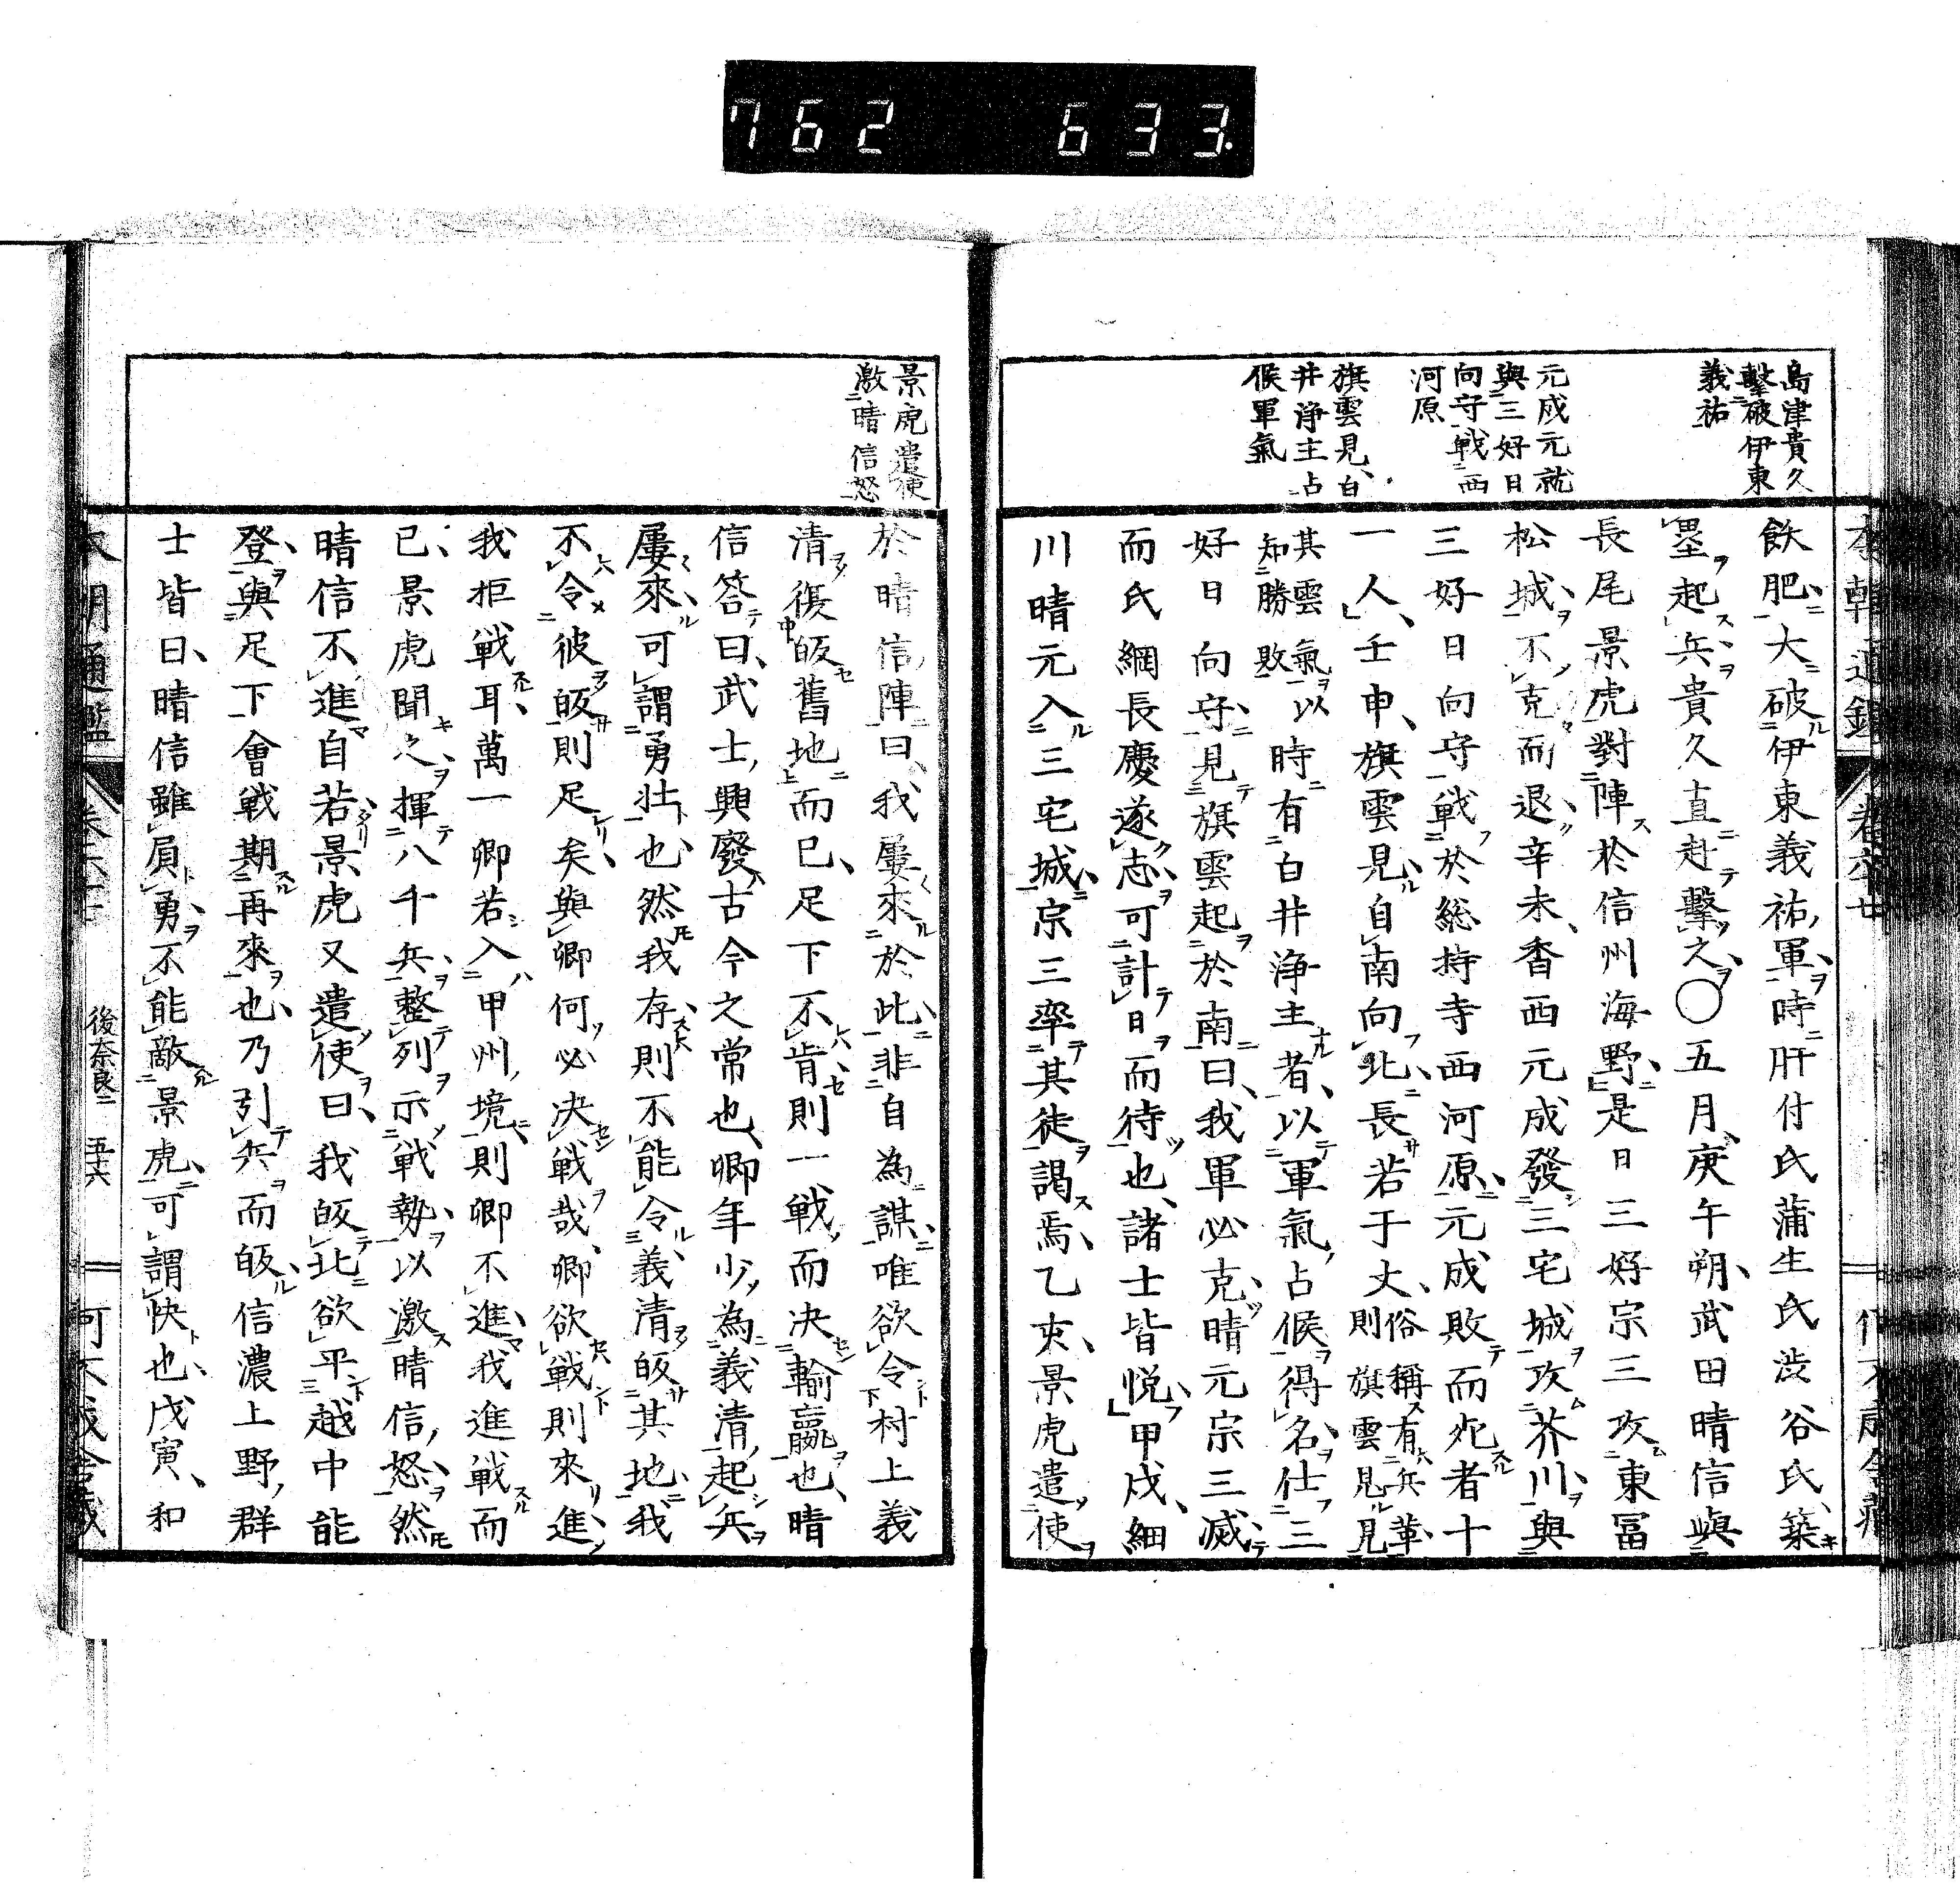 762 633.
島津貴久
擊破伊東
義祐
元成元就
與三好日
向守戰西
河原
旗雲見白
井淨主占
候軍氣
飫肥大破伊東義祐軍時肝付氏蒲生氏渋谷氏築
壘起兵貴久直赴擊之〇五月庚午朔武田晴信與
長尾景虎對陣於信州海野是日三好宗三攻東冨
松城不克而退辛未香西元成發三宅城攻芥川與
三好日向守戰於総持寺西河原元成敗而死者十
一人壬申旗雲見自南向北長若于丈俗稱有兵革
則旗雲見見
其雲氣以
知勝敗
時有白井淨主者以軍氣占候得名仕三
好日向守見旗雲起於南曰我軍必克晴元宗三滅
而氏綱長慶遂志可計日而待也諸士皆悦甲戌細
川晴元入三宅城宗三率其徒謁焉乙亥景虎遣使
景虎遣使
激晴信怒
於晴信陣曰我屢來於此非自為謀唯欲令村上義
清復皈舊地而已足下不肯則一戰而决輸嬴也晴
信答曰武士興廢古今之常也卿年少為義清起兵
屢來可謂勇壮也然我存則不能令義清皈其地我
不令彼皈則足矣與卿何必决戰哉卿欲戰則來進
我拒戰耳萬一卿若入甲州境則卿不進我進戰而
已景虎聞之揮八千兵整列示戰勢以激晴信怒然
晴信不進自若景虎又遣使曰我皈北欲平越中能
登與足下會戰期再來也乃引兵而皈信濃上野群
士皆曰晴信雖屓勇不能敵景虎可謂快也戊寅和
後奈良二 五十六